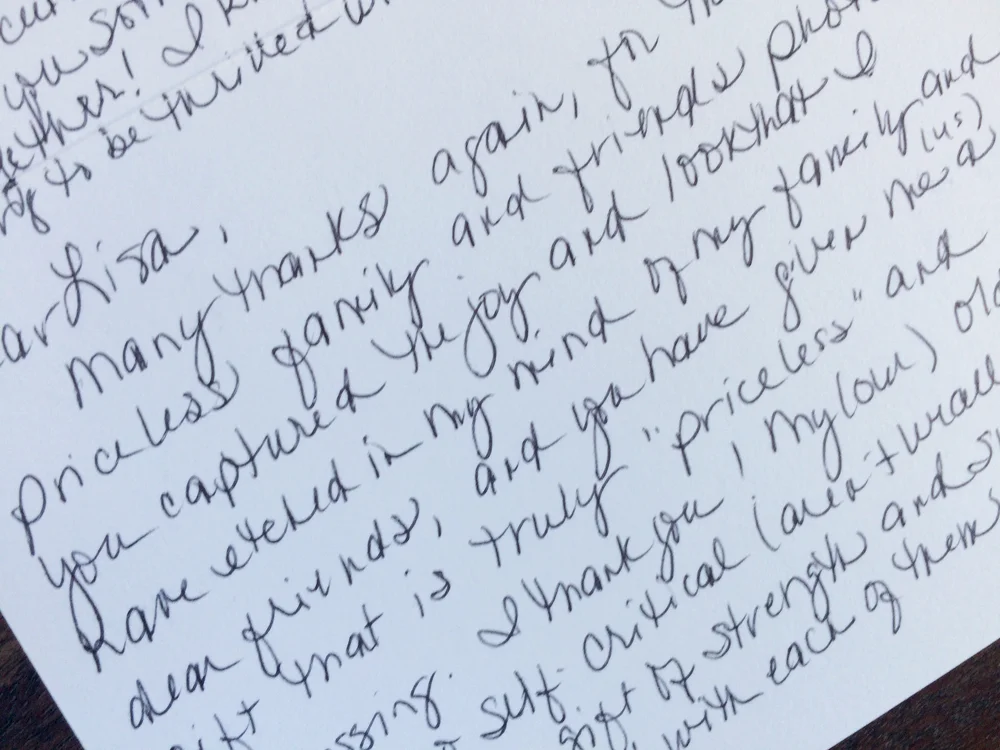 you som
! I k
to be thrilled w
ar Lisa,
Many thanks again, for th
priceless family and friends phot
you captured the joy and look that I
have etched in my mind of my family and
dear friends, and you have given me (us) a
ift that is truly "priceless" and
ssing. I thank you, my (our) old
self-critical (aren't we all
gift of strength and s
with each of them